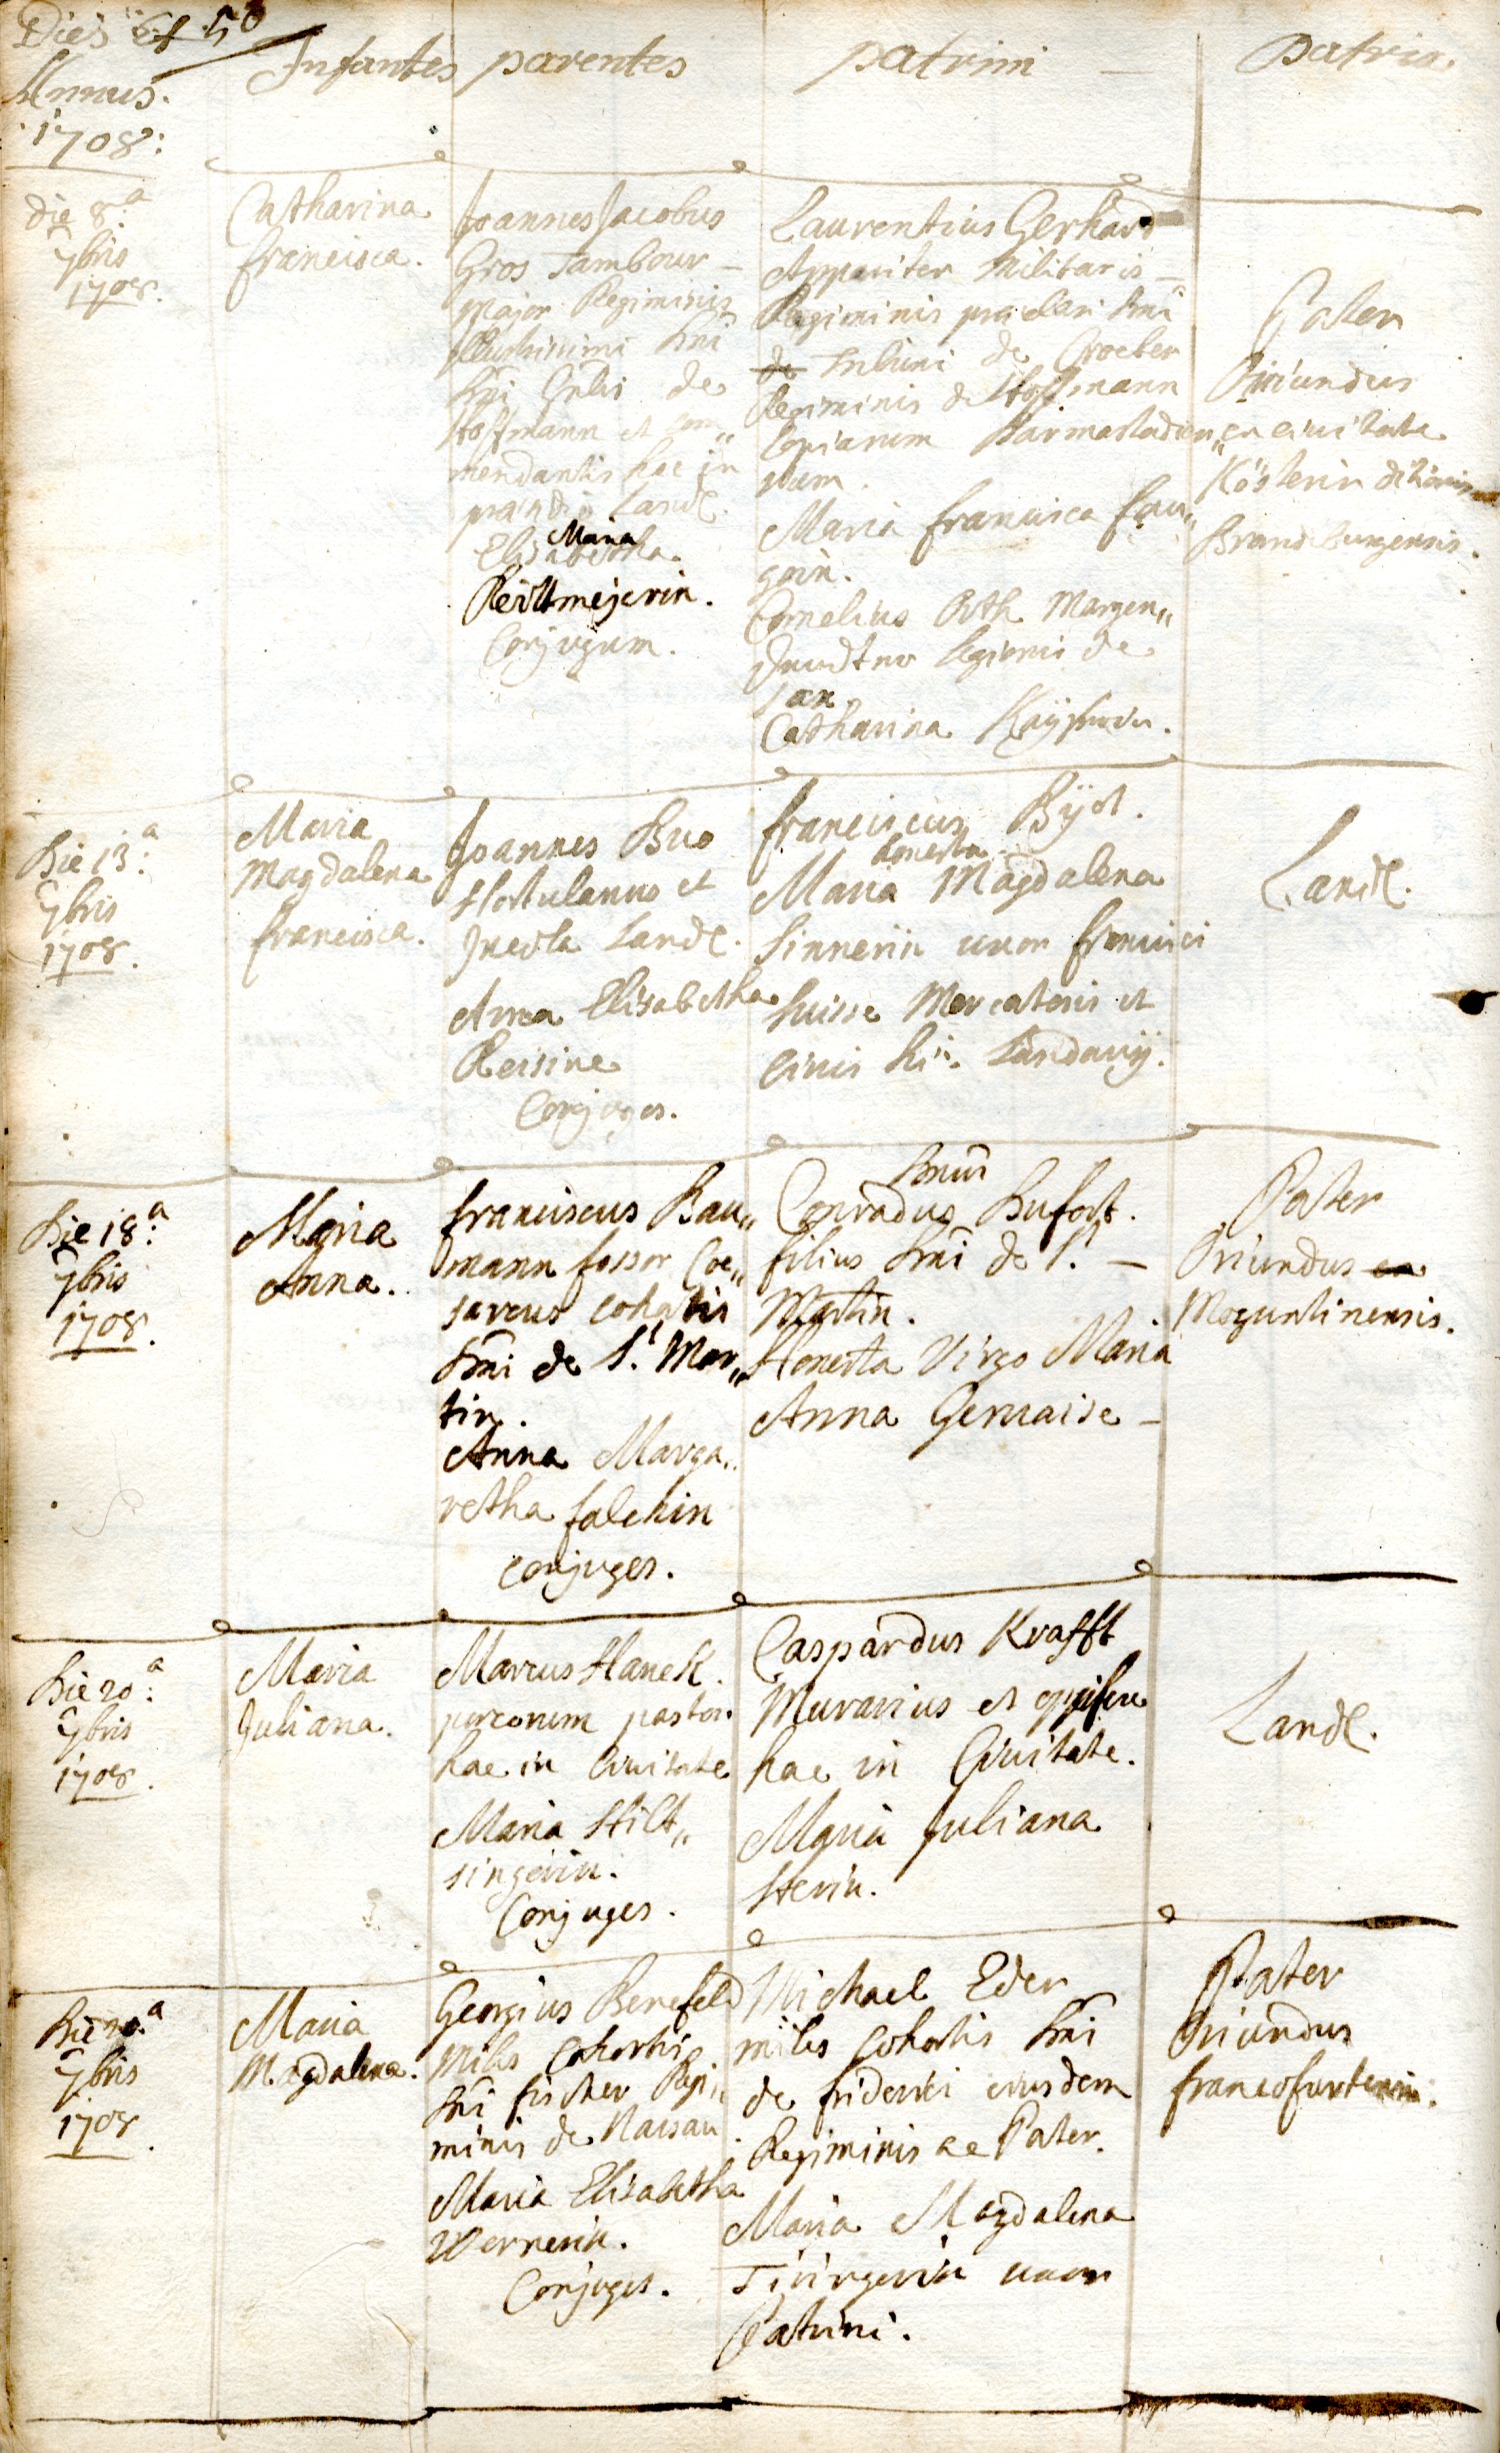 Dies et 50
Annus.
1708:
Infantes
parentes
patrini —
patria.
Die 8.a
7bris
1708.
Catharina
francisca.
Joannes Jacobus
Gros Tambour —
major Regiminis
Illustrissimi Dni
Dni de
Hoffmann et com„
mendantis hac in
Land.
Maria
Elisabetha
Reittmejerin.
Conjugum.
Laurentius Gerhard
Appariter Militaris —
Regiminis Dni
de Tribuni de Croeber
Regiminis de Hoffmann
Copiarum Darmstadien„
sium.
Maria francisca fau„
goin.
Cornelius Roth Margen„
legionis de
Catharina
Pater
Oriundus
ex civitate
Kösterin ditionis
Brandeburgensis.
Die 13.a
7bris
1708.
Maria
Magdalena
francisca.
Joannes Buo
Hortulanus et
Incola Land.
Anna Elisabetha
Reisine
Conjuges.
franciscus Byot.
honesta
Maria Magdalena
Sinnerin uxor francisci
Suisse Mercatoris et
civis hic Landavij.
Land.
Die 18.a
7bris
1708.
Maria
Anna.
franciscus Bau„
mann fossor Coe„
sareus cohortis
Dni de St. Mar„
tin.
Anna Marga„
retha falckin
conjuges.
Dnus
Conradus Bufort.
filius Dni de St. —
Martin.
Honesta Virgo Maria
Anna Gervaise —
Pater
Oriundus ex
Moguntinensis.
Die 20.a
7bris
1708.
Maria
Juliana.
Marcus Hanck.
porcorum pastor
hac in Civitate
Maria Hilt„
singerin.
Conjuges.
Caspardus Krafft
Murarius et opifex
hac in Civitate.
Maria Juliana
Herin.
Land.
Die 20.a
7bris
1708.
Maria
Magdalena.
Georgius Benefeld
Miles cohortis
Dni fischer Regi„
minis de Nassau.
Maria Elisabetha
Wernerin.
Conjuges.
Michael Eder
miles cohortis Dni
de friderici eiusdem
Regiminis ac Pater.
Maria Magdalena
Tiiringerin uxor
Patrini.
Pater
Oriundus
francofurtensis.